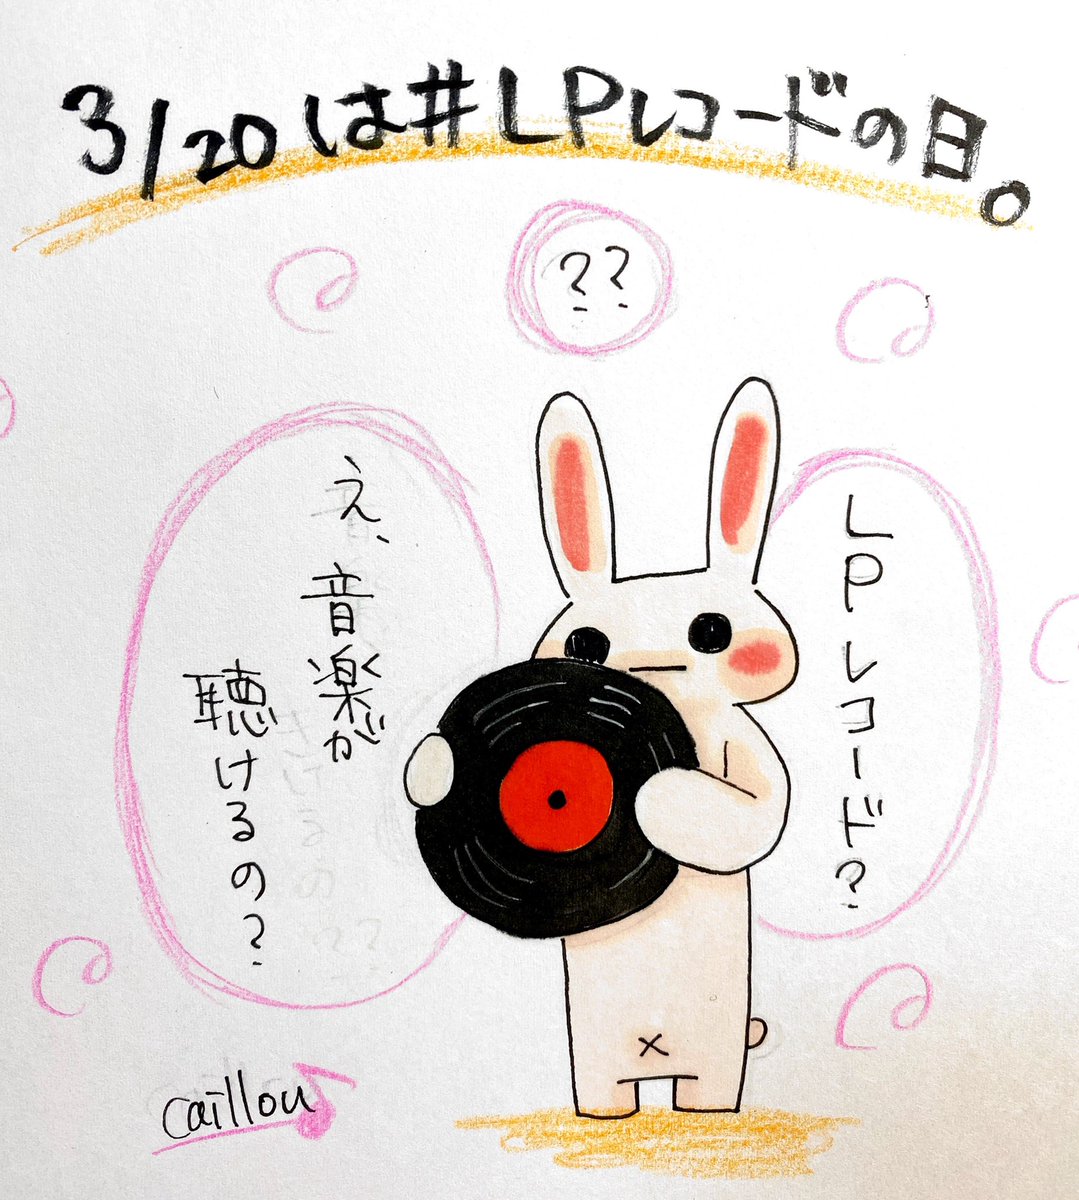 3/20は#LPレコードの日。
??
LPレコード?
え、音楽が
聴けるの?
caillou